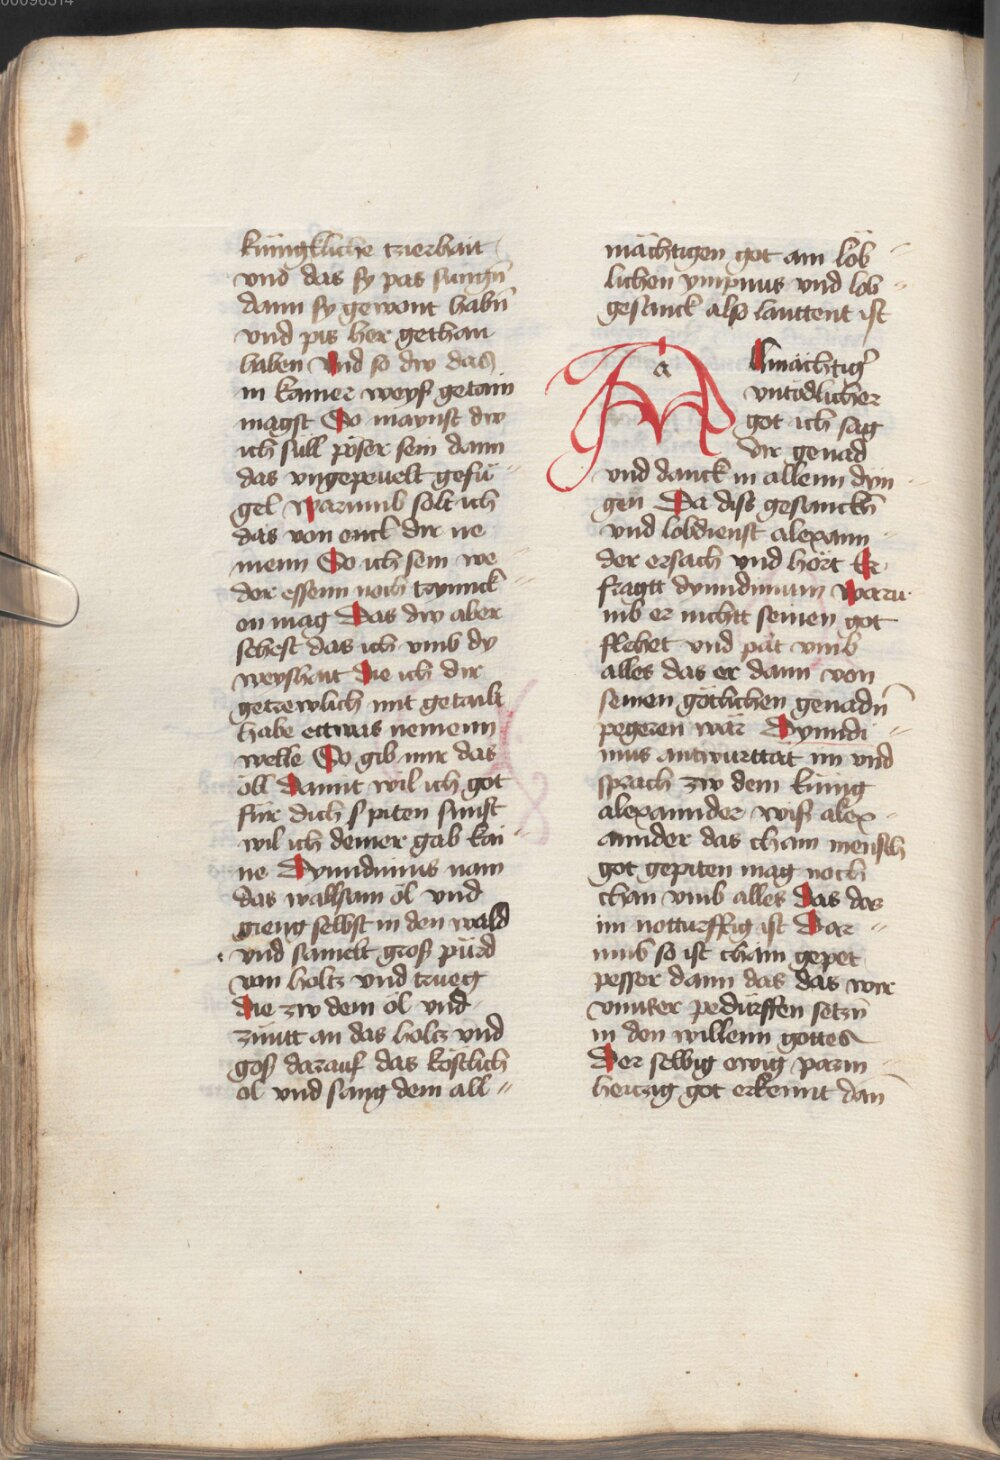 künigkliche tzierhait
vnd das sy pas sungn̄
dann sy gewont habn̄
vnd pis her gethan
haben Vnd so dw das
in kainer weyß getain
magst So maynst dw
ich süll pöser sein dann
das vngepruelt gefü〃
gel Warumb solt ich
das von euch dir ne
menn So ich sein we〃
der essenn noch trinnck〃
en mag Das dw aber
sehest das ich vmb dy
weyshait Die ich dir
getrewlich mit getailt
habe ettwas nemenn
welle So gib mir das
öll Damit wil ich got
für dich s piten sunst
wil ich deiner gab kai〃
ne Dynndimus nam
das wallsam öl vnd
gieng selbst in den wald
vnd samelt groß pürd
von holtz vnd trueg
die zw dem öl vnd
züntt an das holtz vnd
goß darauf das köstlich
öl vnd sang dem all〃
mächtigen got ain lob〃
lichen ympnus vnd lob〃
gesanck also lauttent ist
a
Almächtig̉
vntödlicher
got ich sag
dir genad
vnd danck in allenn din〃
gen Da diss gesanckh
vnd lobdienst alexann〃
der ersach vnd hört Er
fragtt dynndimum Waru〃
mb er nichtt seinen got
flehet vnd pät vmb
alles das er dann von
seinen götlichen genadn̄
pegeren wär Dynndi〃
mus antwurttat im vnd
sprach zw dem künig
alexannder wiß alex〃
annder das chain mensch
got gepiten mag noch
chan vmb alles Das das
im notturfftig ist Dar〃
umb so ist chain gepet
pesser dann das das wir
vnnser pedürffen setzn̄
in den willenn gottes
Der selbig ewig parm〃
hertzig got erkennt dan̄